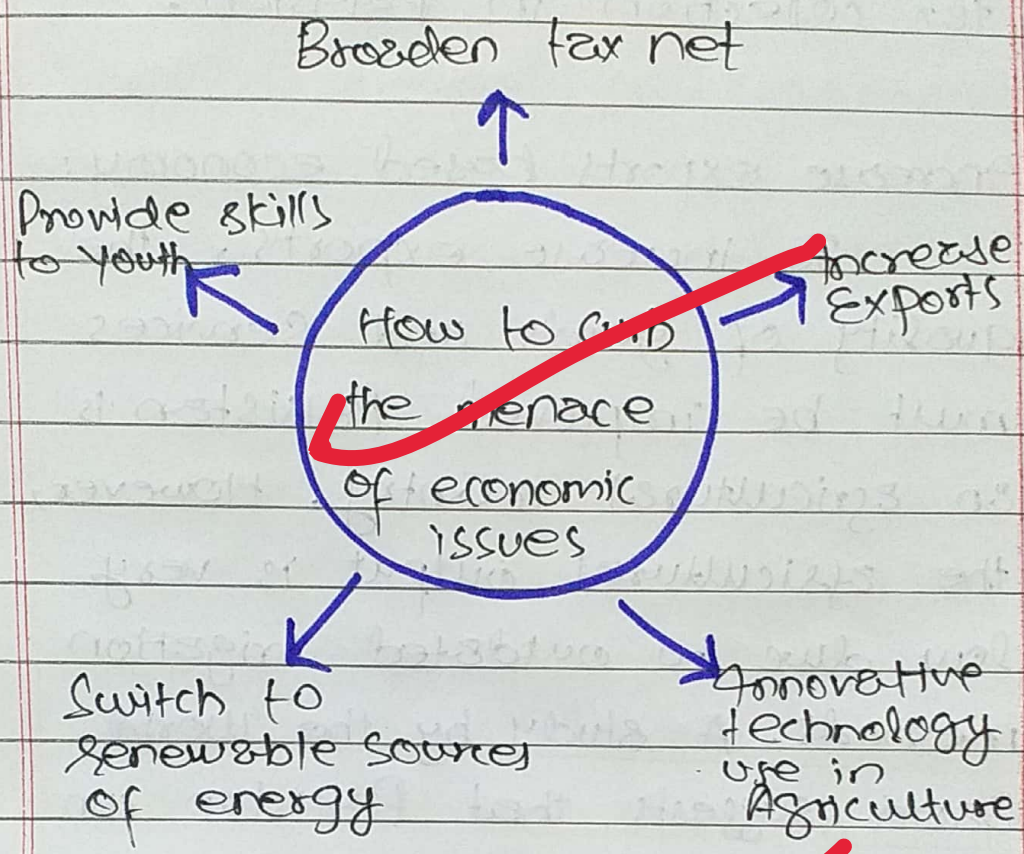 Broaden tax net
Provide skills
to youth
Increase
Exports
How to curb
the menace
of economic
issues
Switch to
renewable sources
of energy
Innovative
technology
use in
Agriculture